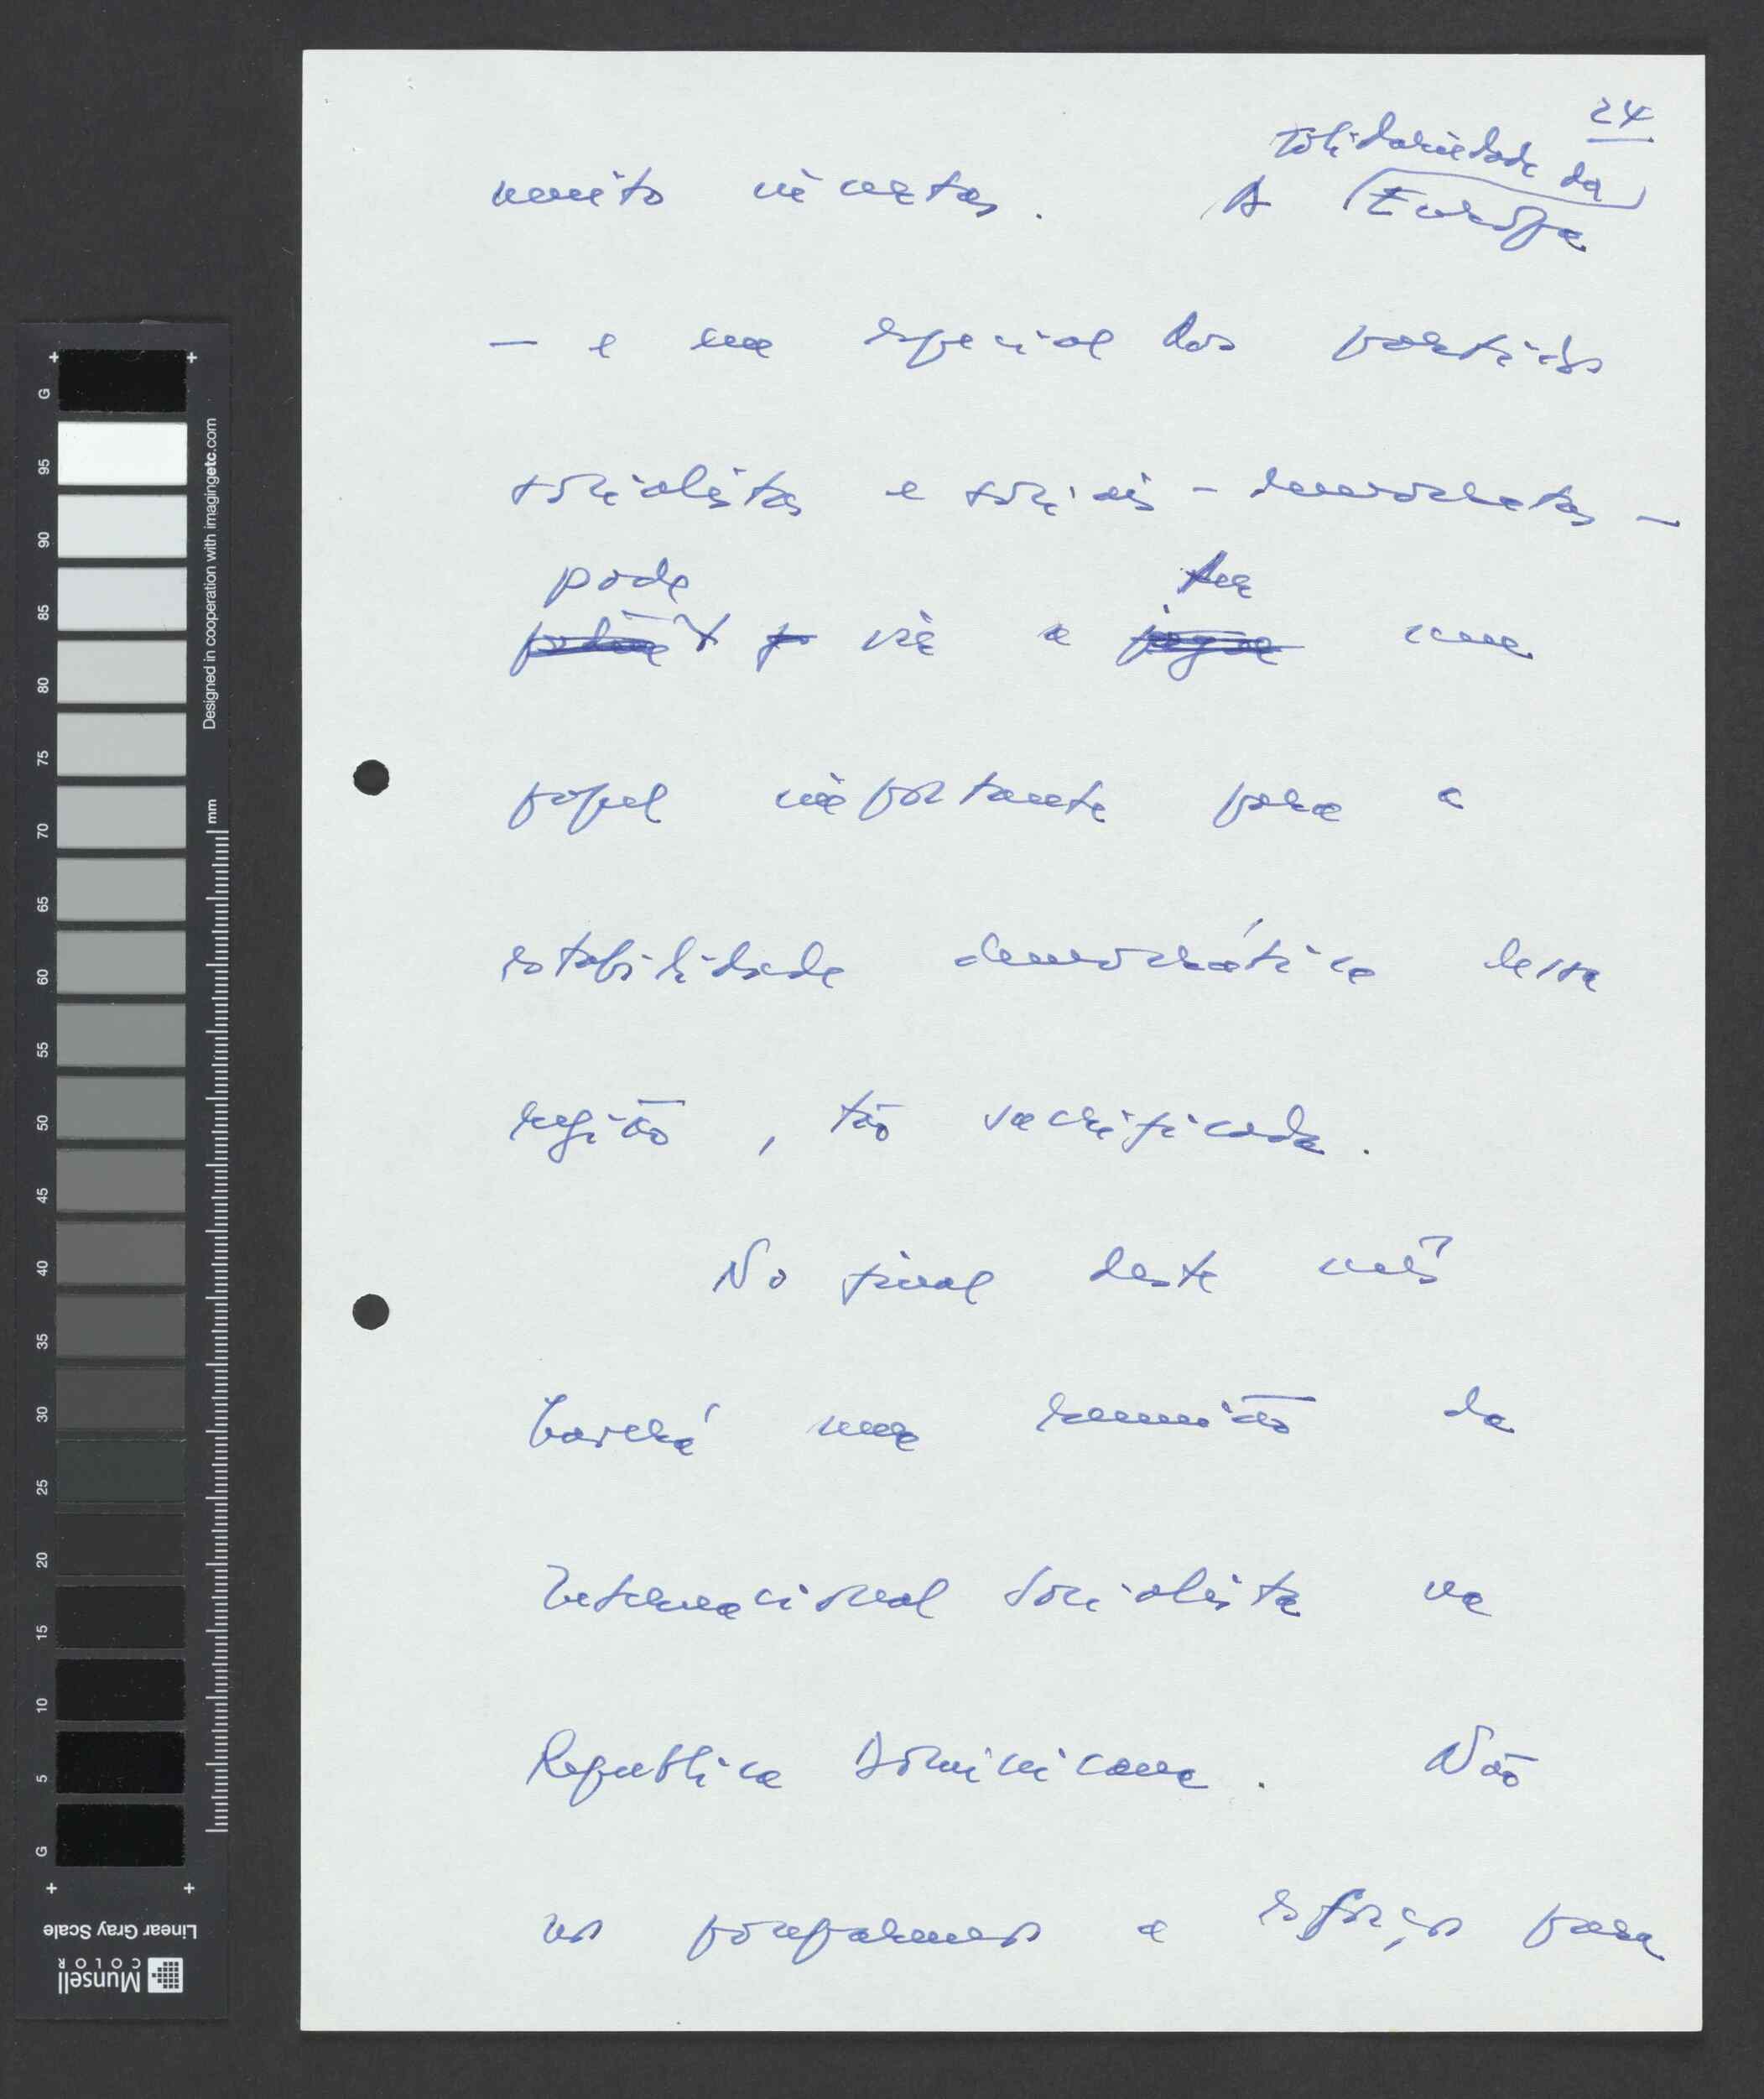 24
solidariedade da
muito incertas. A Europa
— e em especial dos partidos
socialistas e sociais-democratas —
pode ter
vir a um
papel importante para a
estabilidade democrática dessa
região, tão sacrificada.
No final deste mês
haverá uma reunião da
Internacional Socialista na
República Dominicana. Não
nos pouparemos a esforços para
G
95
90
85
80
75
70
65
60
55
50
45
40
35
30
25
20
15
10
5
G
Designed in cooperation with imagingetc.com
mm
Linear Gray Scale
Munsell
COLOR